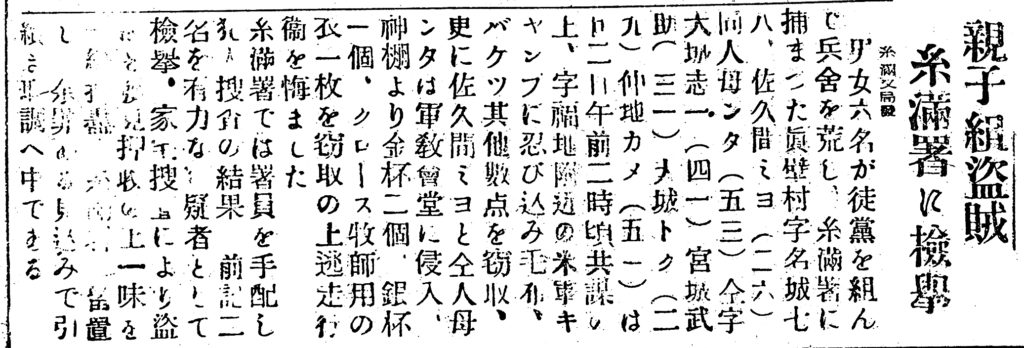 親子組盗賊
糸満署に檢擧
糸満支局發
男女六名が徒黨を組ん
で兵舍を荒し、糸満署に
捕まつた眞壁村字名城七
八、佐久間ミヨ(二六)
同人母ンタ(五三)仝字
大城志一(四一)宮城武
助(三一)大城トク(二
九)仲地カメ(五一)は
日二日午前二時頃共謀の
上、字福地附近の米軍キ
ャンプに忍び込み毛布、
バケツ其他數点を窃取、
更に佐久間ミヨと仝人母
ンタは軍敎會堂に侵入、
神棚より金杯二個、銀杯
一個、クロース牧師用の
衣一枚を窃取の上逃走行
衞を悔ました
糸満署では署員を手配し
犯人搜査の結果、前記二
名を有力な疑者として
檢擧、家宅搜査により盗
発見押收の上一味を
留置
し、余罪ある見込みで引
続き取調へ中である